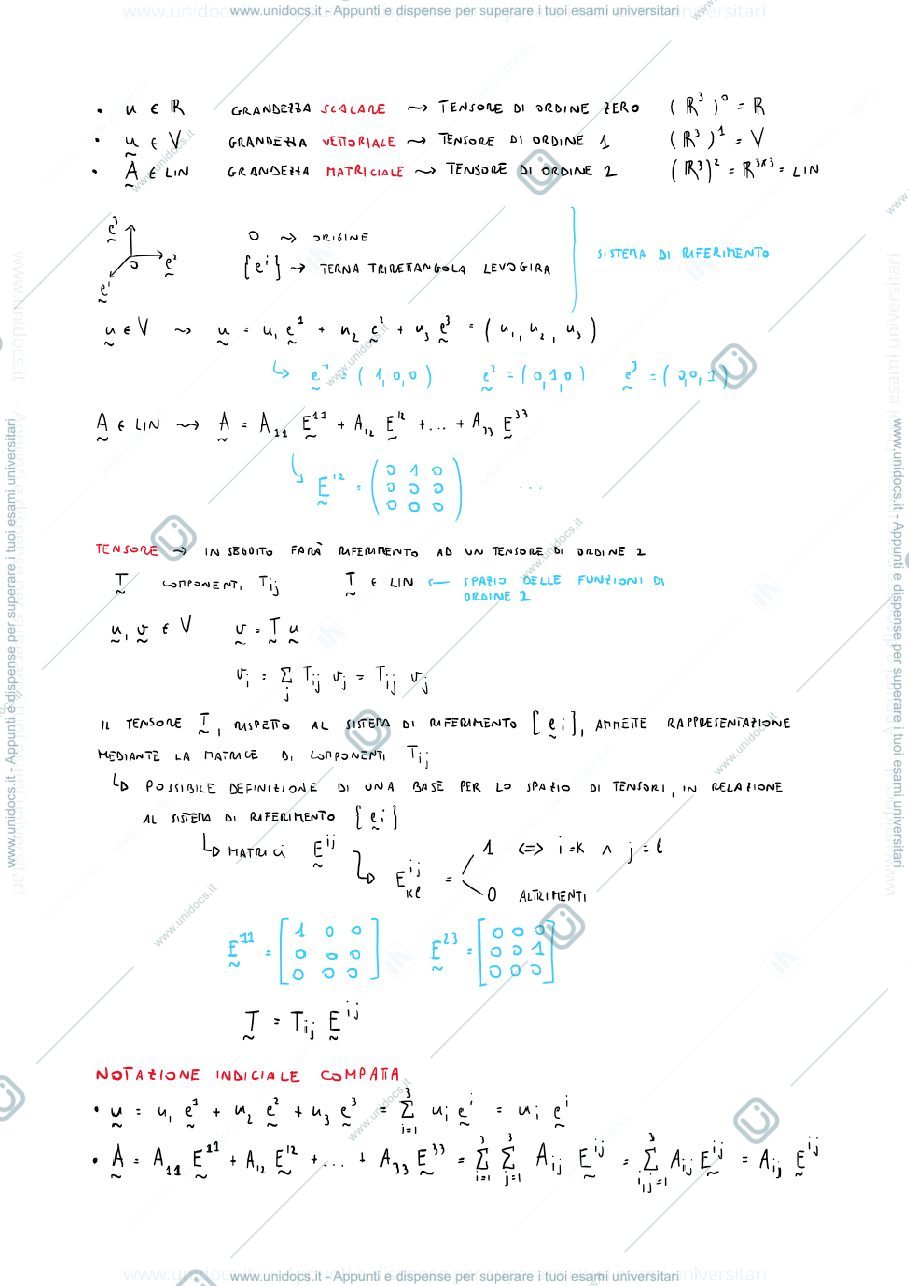 www.unidocs.it - Appunti e dispense per superare i tuoi esami universitari
• u ∈ R GRANDEZZA SCALARE ⇝ TENSORE DI ORDINE ZERO (R³)⁰ = R
• u ∈ V GRANDEZZA VETTORIALE ⇝ TENSORE DI ORDINE 1 (R³)¹ = V
• A ∈ LIN GRANDEZZA MATRICIALE ⇝ TENSORE DI ORDINE 2 (R³)² = R³ˣ³ = LIN
e³
O e²
e¹
O ⇝ ORIGINE
{eⁱ} → TERNA TRIRETANGOLA LEVOGIRA
SISTEMA DI RIFERIMENTO
u ∈ V ⇝ u = u₁ e¹ + u₂ e² + u₃ e³ = (u₁, u₂, u₃)
↳ e¹ = (1,0,0) e² = (0,1,0) e³ = (0,0,1)
A ∈ LIN ⇝ A = A₁₁ E¹¹ + A₁₂ E¹² + ... + A₃₃ E³³
↳ E¹² = (0 1 0
0 0 0
0 0 0) ...
TENSORE → IN SEGUITO FARÀ RIFERIMENTO AD UN TENSORE DI ORDINE 2
T COMPONENTI Tij T ∈ LIN ← SPAZIO DELLE FUNZIONI DI
ORDINE 2
u, v ∈ V v = T u
vi = Σj Tij vj = Tij vj
IL TENSORE T, RISPETTO AL SISTEMA DI RIFERIMENTO {ei}, AMMETE RAPPRESENTAZIONE
MEDIANTE LA MATRICE DI COMPONENTI Tij
↳ POSSIBILE DEFINIZIONE DI UNA BASE PER LO SPAZIO DI TENSORI, IN RELAZIONE
AL SISTEMA DI RIFERIMENTO {ei}
↳ MATRICI Eij
↳ Eij kl = 1 ⇔ i=k ∧ j=l
0 ALTRIMENTI
E¹¹ = [1 0 0
0 0 0
0 0 0]
E²³ = [0 0 0
0 0 1
0 0 0]
T = Tij Eij
NOTAZIONE INDICIALE COMPATTA
• u = u₁ e¹ + u₂ e² + u₃ e³ = Σ(i=1..3) ui ei = ui ei
• A = A₁₁ E¹¹ + A₁₂ E¹² + ... + A₃₃ E³³ = Σ(i=1..3) Σ(j=1..3) Aij Eij = Σ(i,j=1..3) Aij Eij = Aij Eij
www.unidocs.it - Appunti e dispense per superare i tuoi esami universitari
www.unidocs.it - Appunti e dispense per superare i tuoi esami universitari
www.unidocs.it - Appunti e dispense per superare i tuoi esami universitari